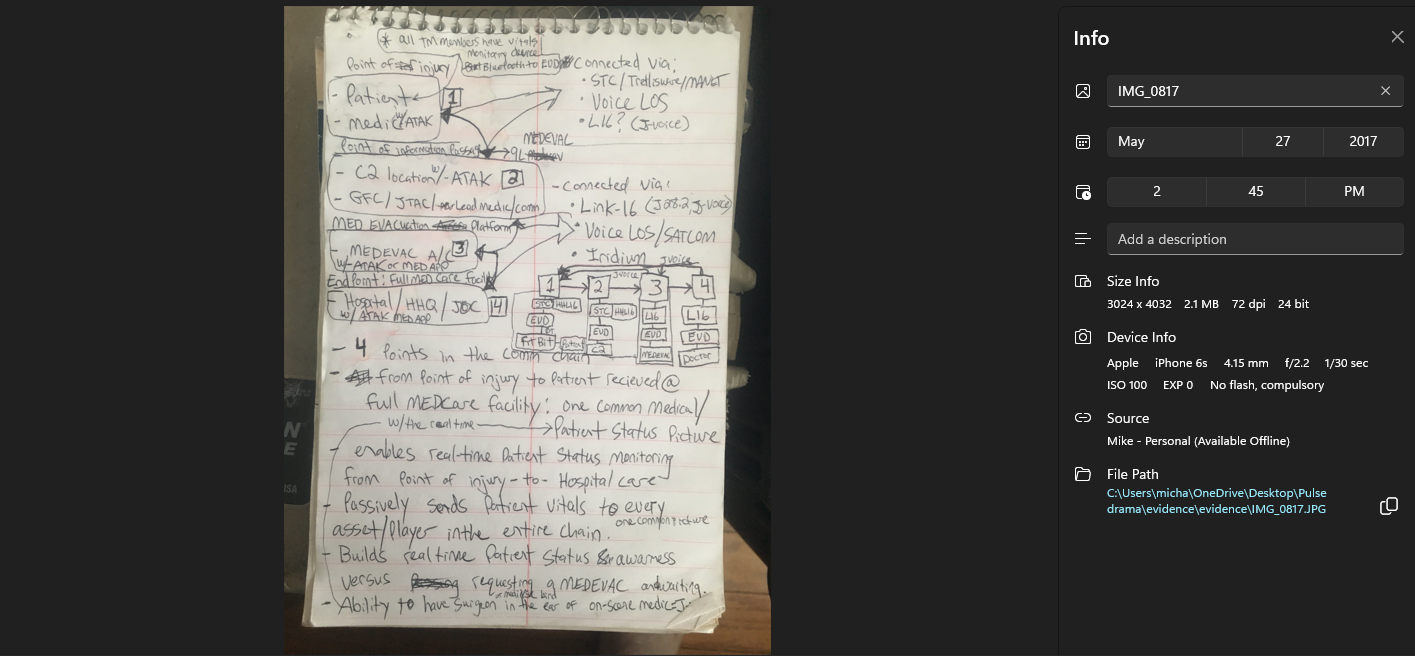 * all TM members have vitals
monitoring device
Bluetooth to EUD
Point of injury
- Patient
1
- medic w/ ATAK
Connected Via:
• STC/Trellisware/MANET
• Voice LOS
• L16? (J-voice)
Point of information Passage
MEDEVAC
→ 9L
- C2 location w/ ATAK
2
- GFC/JTAC/Lead medic/comm
- Connected Via:
• Link-16 (J28.2, J-voice)
• Voice LOS/SATCOM
• Iridium
MED EVACuation Platform
- MEDEVAC A/C
3
w/ ATAK or MED APP
End Point: Full MED Care facility
- Hospital/HHQ/JOC
14
w/ ATAK MED APP
J voice
J-voice
1
2
3
4
STC
HHL16
STC
HHL16
L16
L16
EUD
EUD
EUD
EUD
BT
FitBit
Patient
C2
MEDEVAC
DOCTOR
- 4 Points in the comm chain
- from Point of injury to Patient recieved @
full MEDCare facility: one common Medical/
w/the real time
Patient Status Picture
- enables real-time Patient Status Monitoring
from Point of injury-to-Hospital care
- Passively sends Patient vitals to every
one common picture
asset/Player in the entire chain.
- Builds real time Patient Status awarness
versus requesting a MEDEVAC and waiting.
- Ability to have Surgeon in the ear of on-scene medic
N
E
USA
Info
IMG_0817
May
27
2017
2
45
PM
Add a description
Size Info
3024 x 4032 2.1 MB 72 dpi 24 bit
Device Info
Apple iPhone 6s 4.15 mm f/2.2 1/30 sec
ISO 100 EXP 0 No flash, compulsory
Source
Mike - Personal (Available Offline)
File Path
C:\Users\micha\OneDrive\Desktop\Pulse
drama\evidence\evidence\IMG_0817.JPG